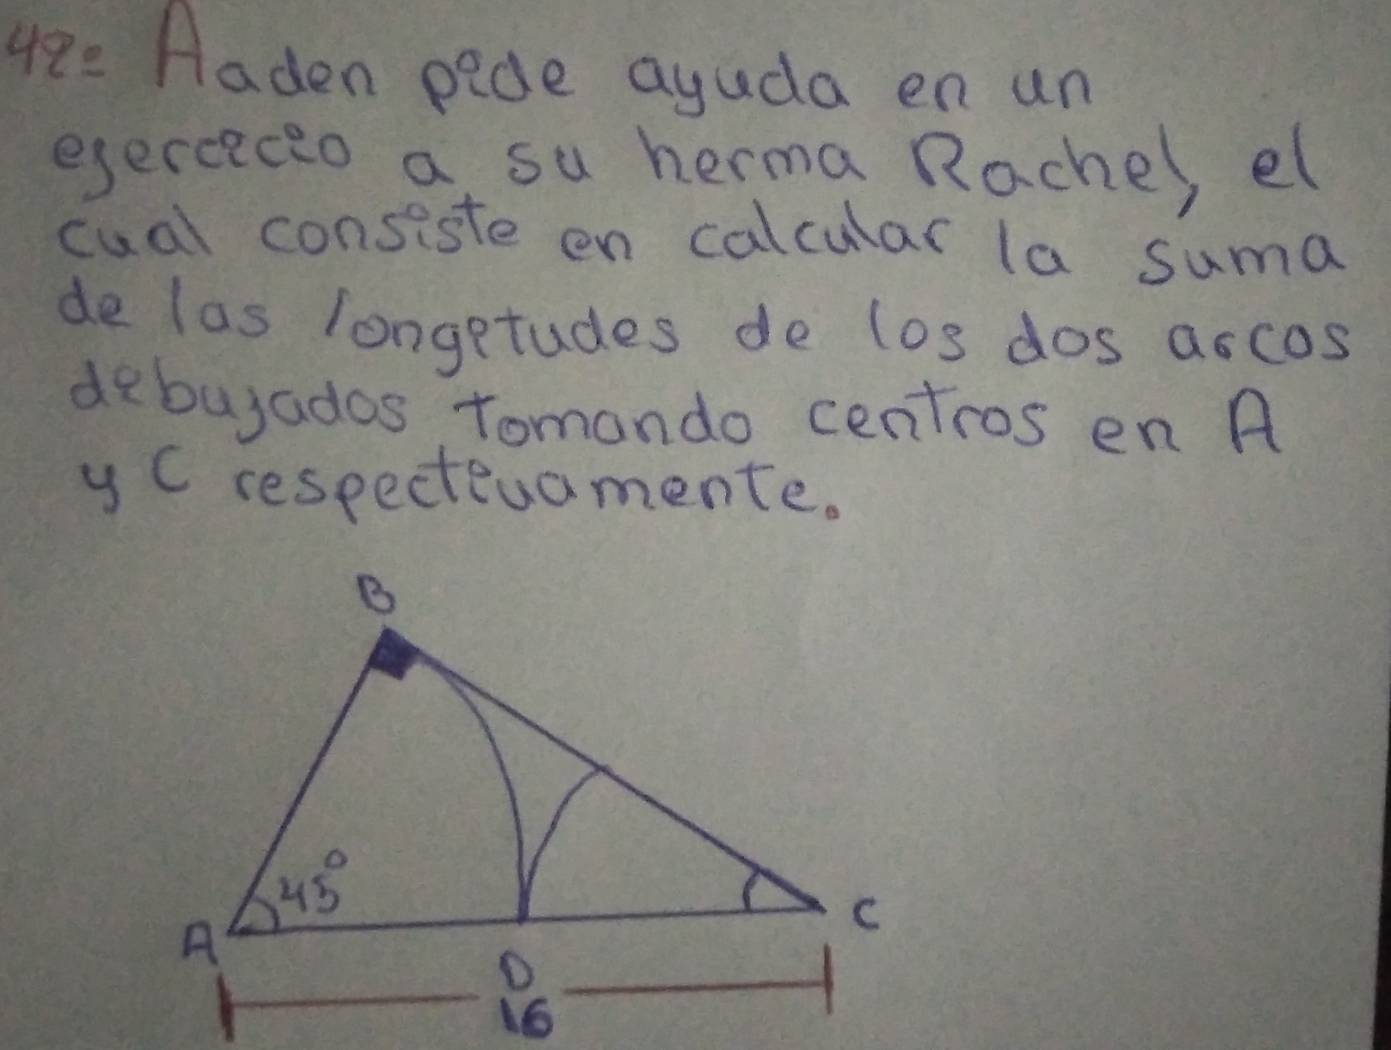 42= Aaden pide ayuda en un
ejercicio a su herma Rachel, el
cual consiste en calcular la suma
de las longitudes de los dos arcos
dibujados tomando centros en A
y C respectivamente.
B
45°
A
C
D
16